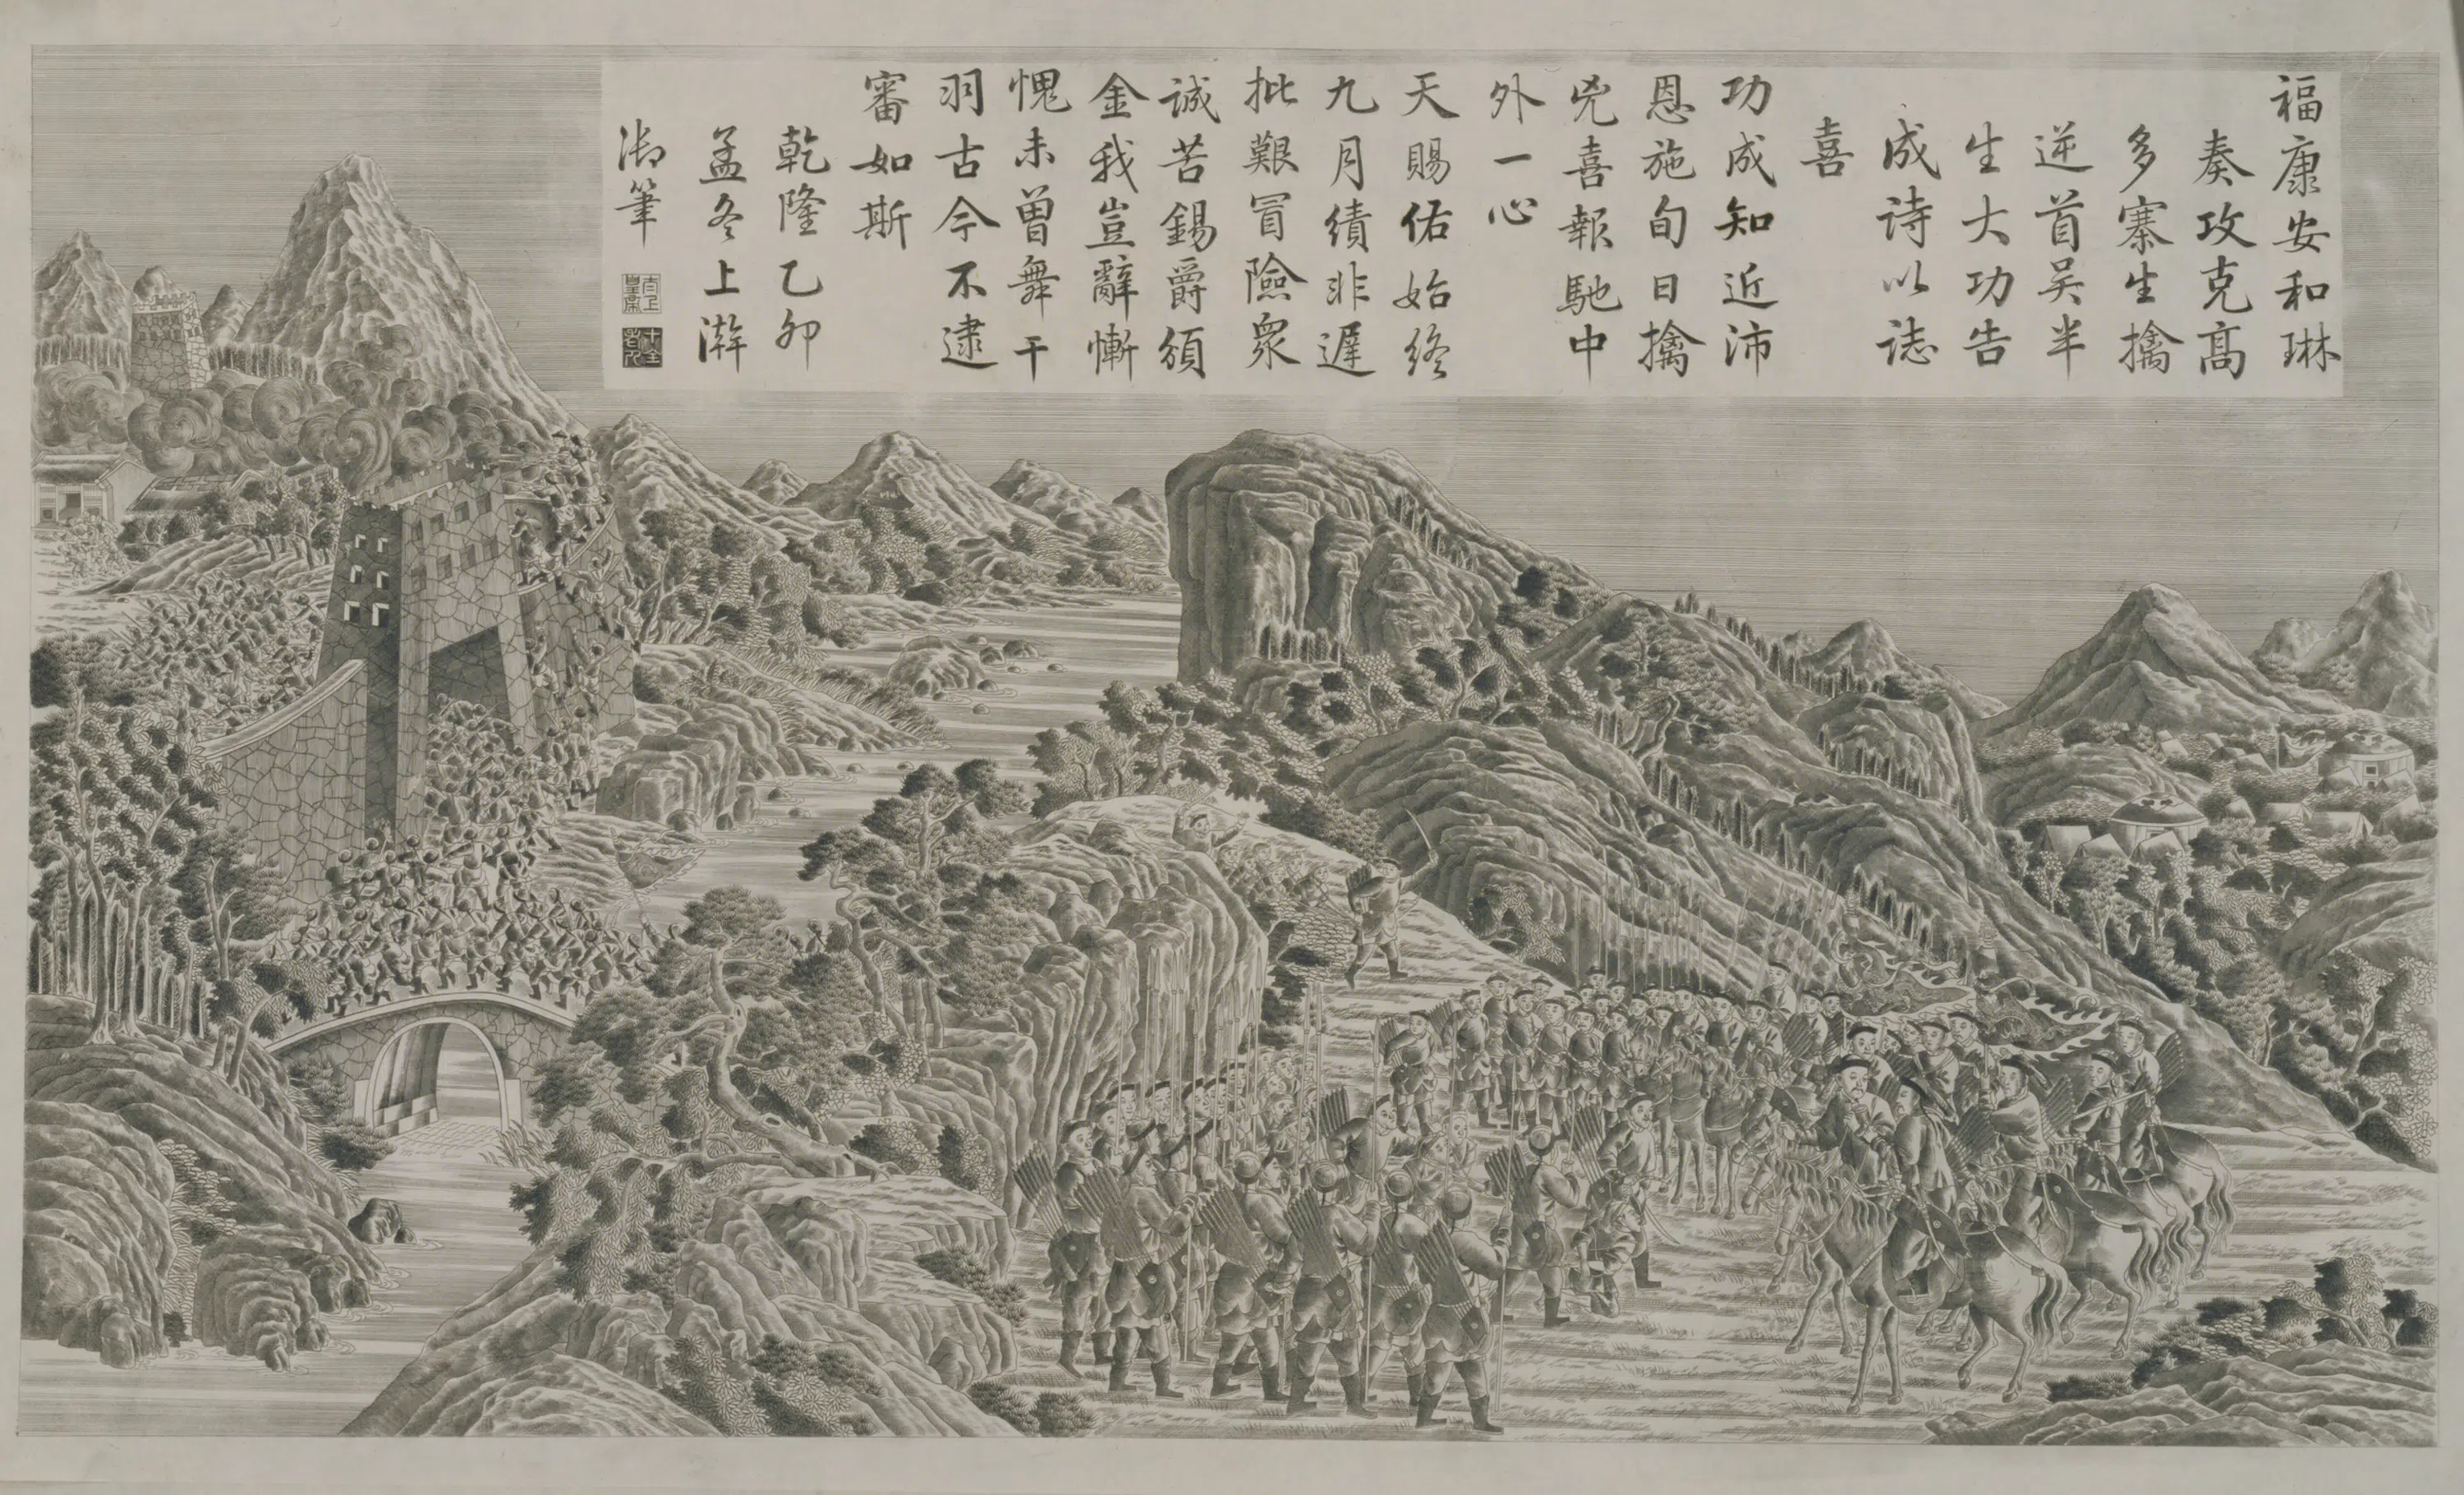 福康安和琳
奏攻克高
多寨生擒
逆首吴半
生大功告
成诗以誌
喜
功成知近沛
恩施旬日擒
兇喜報馳中
外一心
天賜佑始終
九月績非遲
批艱冒險衆
誠苦錫爵頒
金我豈辭慚
愧未曾舞干
羽古今不逮
審如斯
乾隆乙卯
孟冬上澣
御筆
太上
皇帝
十全
老人